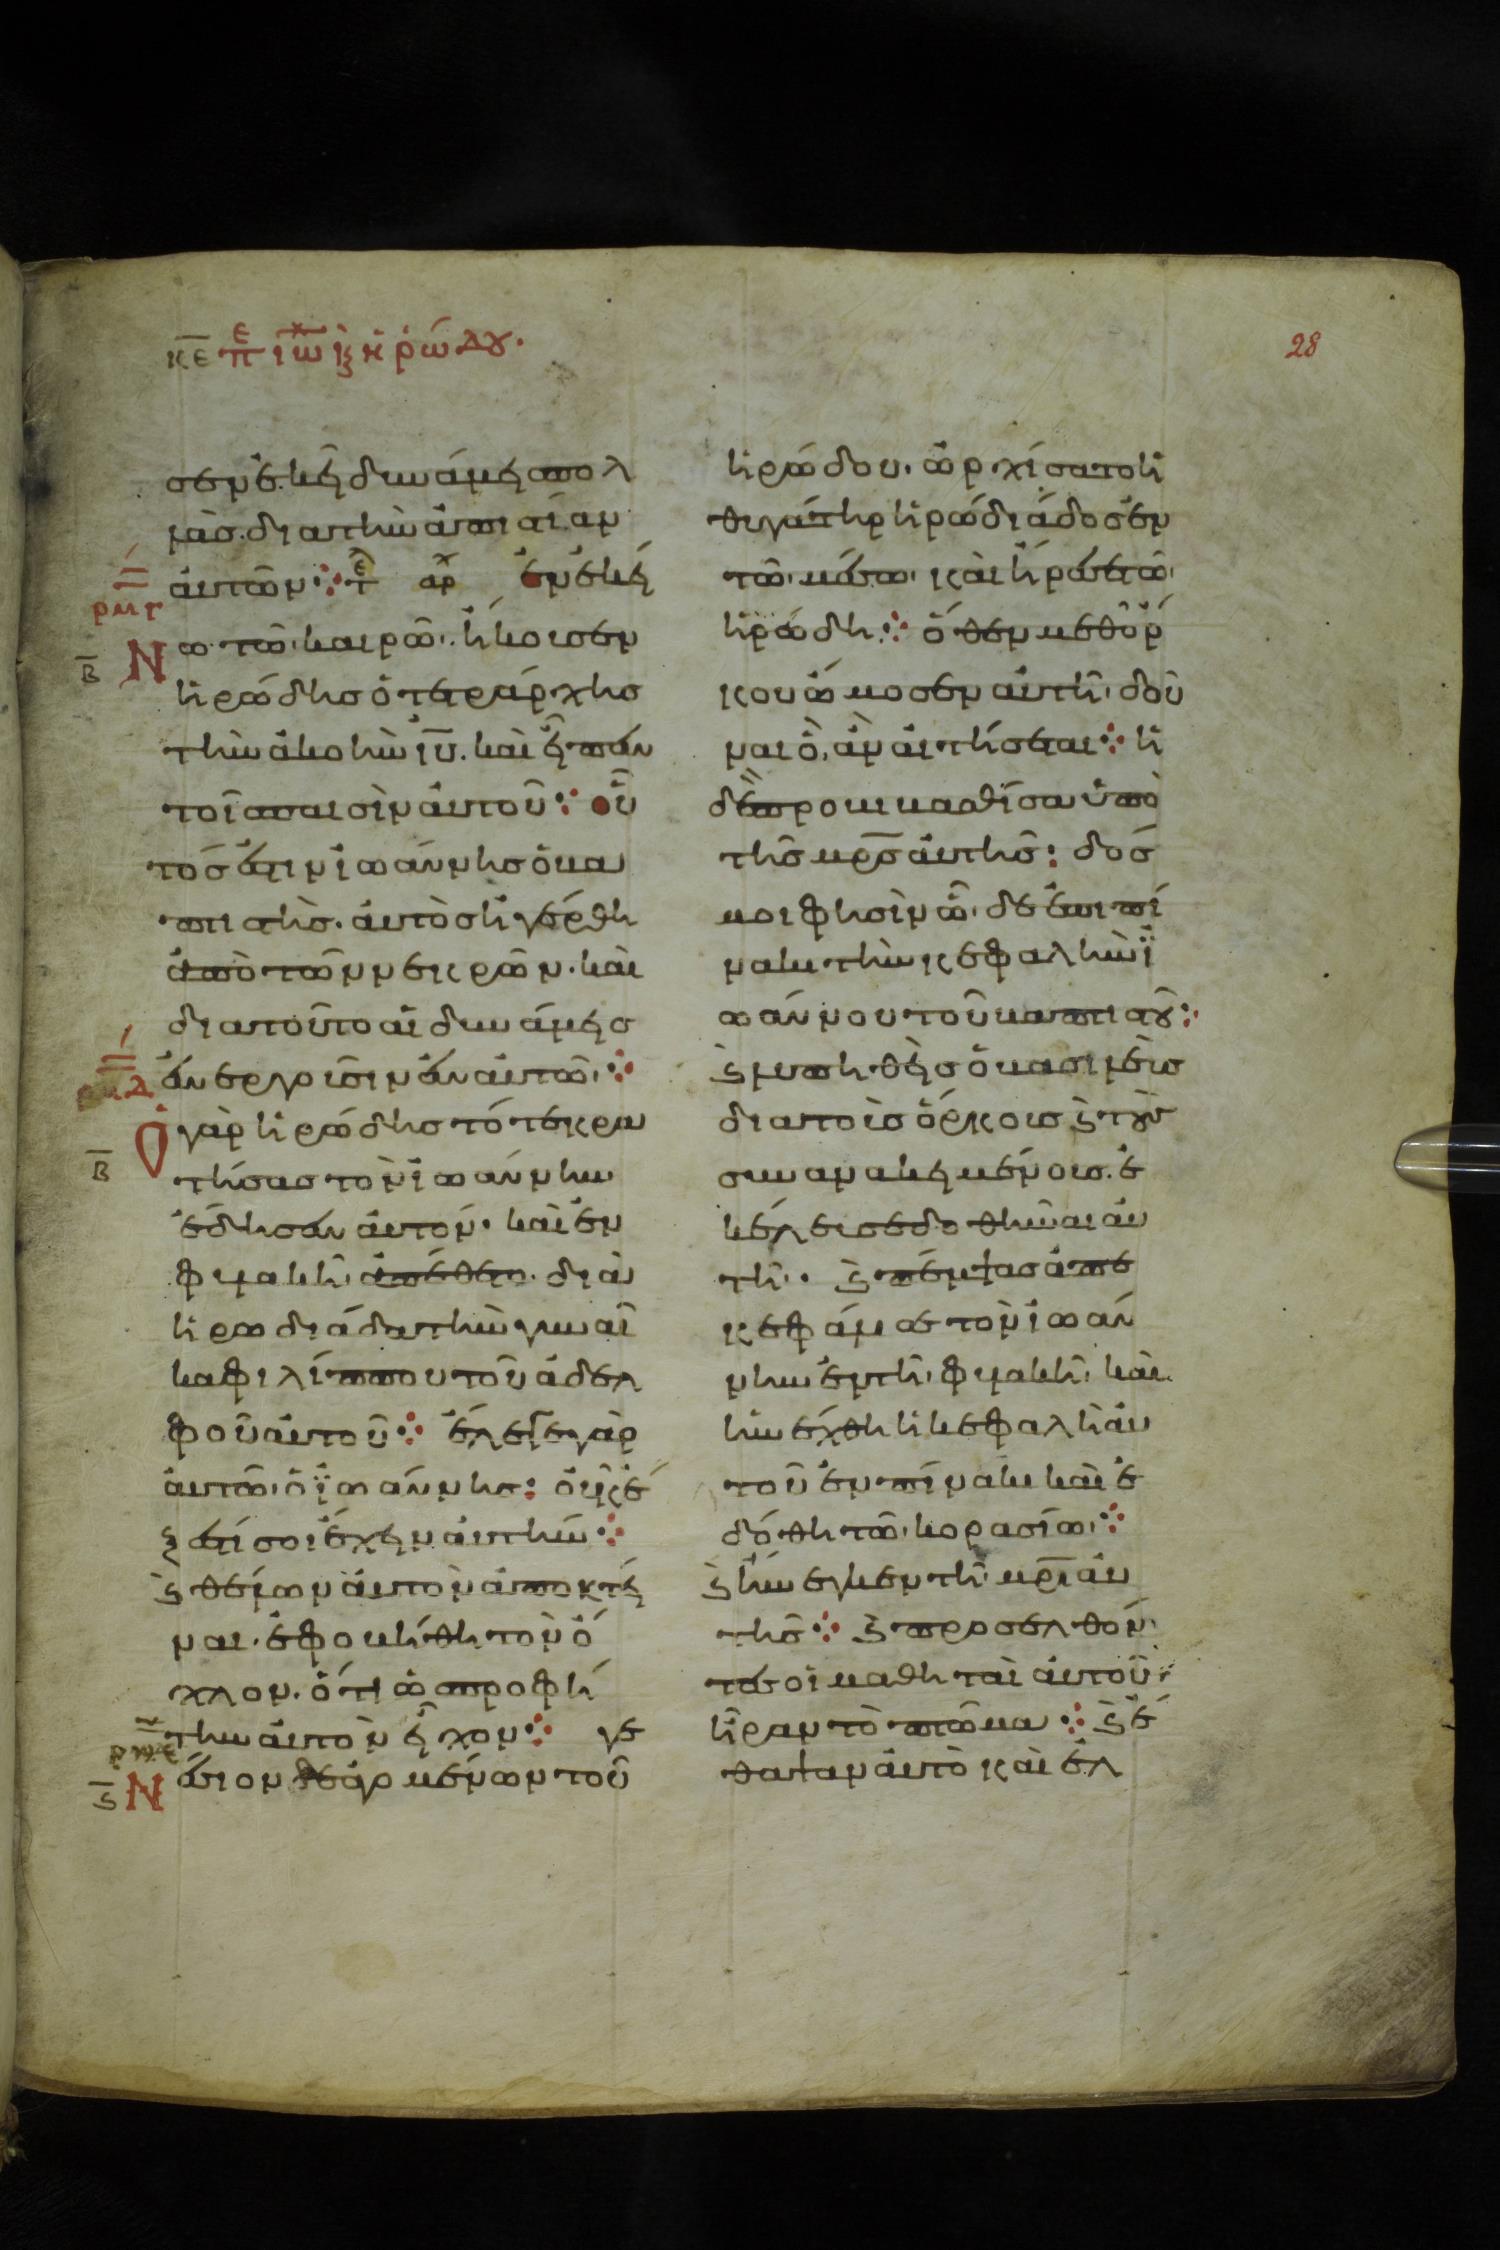 κε πε ιω κ ηρώδου.
28
σεν ἐκεῖ δυνάμεις πολ
λὰσ. διὰ τὴν ἀπιστίαν
ἀυτῶν ⁘ τε αρχ ἐν ἐκεί
ρμγ
β Νω τῶ καιρῶ. ἤκουσεν
ἡρώδησ ὁ τετράρχησ
τὴν ἀκοὴν ιυ. καὶ εἶπεν
τοῖσ παισὶν ἀυτοῦ ⁘ οὗ
τοσ ἐστιν ἰωάννησ ὁ βα
πτιστήσ. ἀυτὸσ ἠγέρθη
ἀπὸ τῶν νεκρῶν. καὶ
διατοῦτο αἱ δυνάμεισ
ἐνεργοῦσιν ἐν ἀυτῶ ⁘
ρμδ
β Ὁ γὰρ ἡρώδησ τότε κρα
τήσασ τὸν ἰωάννην
ἔδησεν ἀυτόν. καὶ ἐν
φυλακῆ ἀπέθετο. διὰ
ἡρωδιάδα τὴν γυναῖ
κα φιλίππου τοῦ ἀδελ
φοῦ ἀυτοῦ ⁘ ἔλεγε γὰρ
ἀυτῶ ὁ ἰωάννησ: ὀυκ ἔ
ξεστί σοι ἔχειν ἀυτήν ⁘
ϛ θέλων ἀυτὸν ἀποκτεῖ
ναι. ἐφοβήθη τὸν ὄ
χλον. ὅτι ὡσ προφή
την ἀυτὸν εἶχον ⁘ γε
ρμε
ϛ Νεσίων δὲ ἀγομένων τοῦ
ἡρώδου. ὠρχήσατο ἡ
θυγάτηρ ἡρωδιάδοσ ἐν
τῶ μέσω καὶ ἤρεσε τῶ
ἡρώδη ⁘ ὅθεν μεθ᾽ ὅρ
κου ὡμολόγησεν ἀυτῆ δοῦ
ναι ὃ ἐὰν ἀιτήσεται ⁘ ἡ
δὲ προβιβασθεῖσα ὑπὸ
τῆσ μρσ ἀυτῆσ: δόσ
μοι φησὶν ὧδε ἐπὶ πί
νακι τὴν κεφαλὴν ἰ
ωάννου τοῦ βαπτιστοῦ ⁘
ϛ ἐλυπήθη ὁ βασιλεὺσ
διὰ τοὺσ ὅρκουσ ϛ τοὺσ
συνανακειμένουσ. ἐ
κέλευσε δοθῆναι ἀυ
τῆ. ϛ πέμψασ ἀπε
κεφάλισε τὸν ἰωάν
νην ἐν τῆ φυλακῆ. καὶ
ἠνέχθη ἡ κεφαλὴ ἀυ
τοῦ ἐν πίνακι καὶ ἐ
δόθη τῶ κορασίω ⁘
ϛ ἤνεγκεν τῆ μρι ἀυ
τῆσ ⁘ ϛ προσελθόν
τεσ οἱ μαθηταὶ ἀυτοῦ
ἦραν τὸ πτῶμα ⁘ ϛ ἔ
θαψαν ἀυτὸ καὶ ἐλ